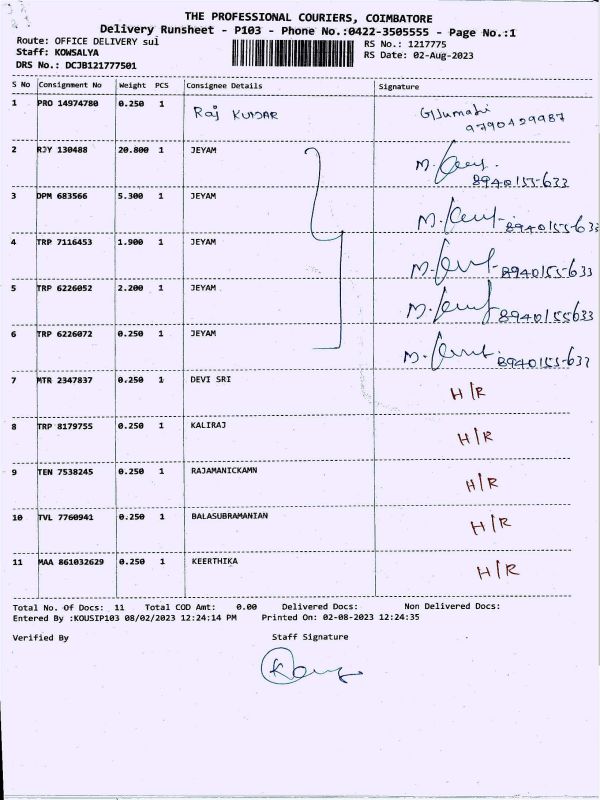 THE PROFESSIONAL COURIERS, COIMBATORE
Delivery Runsheet - P103 - Phone No.:0422-3505555 - Page No.:1
Route: OFFICE DELIVERY sul
RS No.: 1217775
Staff: KOWSALYA
RS Date: 02-Aug-2023
DRS No.: DCJB121777501
S No Consignment No Weight PCS Consignee Details Signature
1 PRO 14974780 0.250 1 Raj KUMAR
9790429987
2 RJY 130488 20.800 1 JEYAM M.
8940155-633
3 DPM 683566 5.300 1 JEYAM M. 8940155-633
4 TRP 7116453 1.900 1 JEYAM M. 8940155-633
5 TRP 6226052 2.200 1 JEYAM M. 8940155633
6 TRP 6226072 0.250 1 JEYAM M. 8940155-633
7 MTR 2347837 0.250 1 DEVI SRI H/R
8 TRP 8179755 0.250 1 KALIRAJ H/R
9 TEN 7538245 0.250 1 RAJAMANICKAMN H/R
10 TVL 7760941 0.250 1 BALASUBRAMANIAN H/R
11 MAA 861032629 0.250 1 KEERTHIKA H/R
Total No. Of Docs: 11 Total COD Amt: 0.00 Delivered Docs: Non Delivered Docs:
Entered By :KOUSIP103 08/02/2023 12:24:14 PM Printed On: 02-08-2023 12:24:35
Verified By Staff Signature